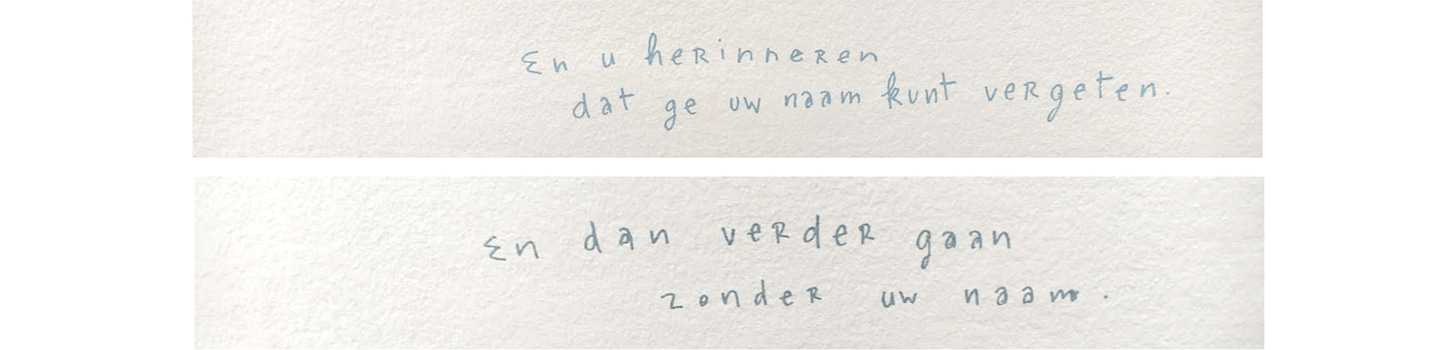 En u herinneren
dat ge uw naam kunt vergeten.
En dan verder gaan
zonder uw naam.